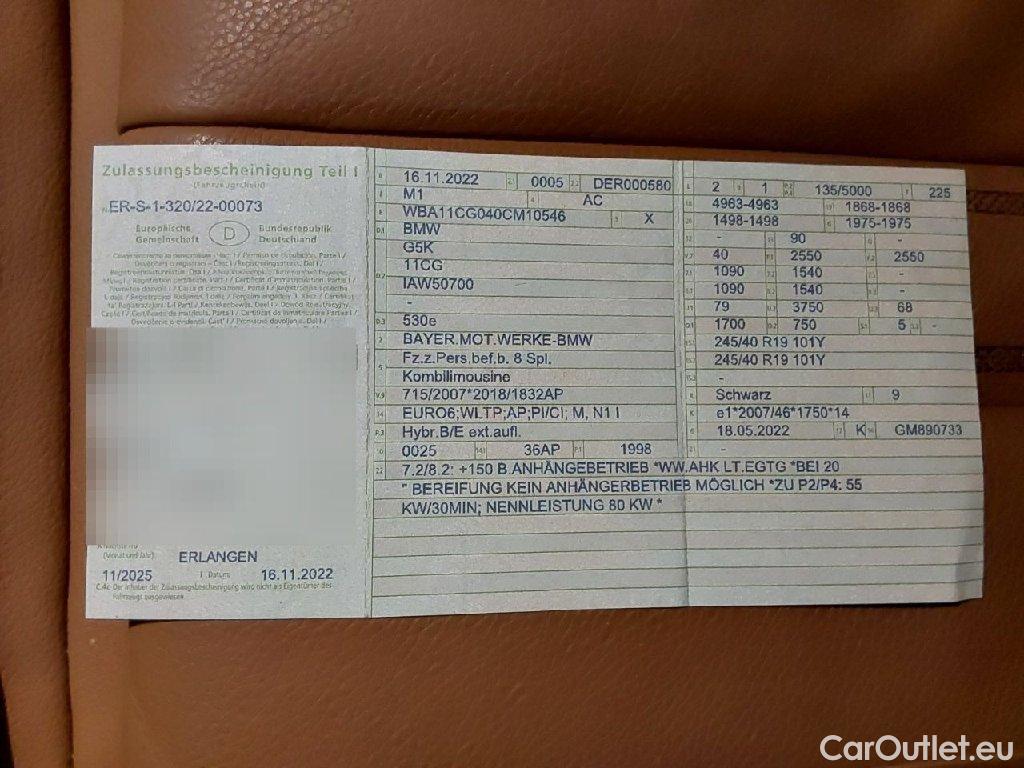 Zulassungsbescheinigung Teil I
(Fahrzeugschein)
ER-S-1-320/22-00073
Europäische Gemeinschaft
D
Bundesrepublik Deutschland
ERLANGEN
11/2025
16.11.2022
C.4c Der Inhaber der Zulassungsbescheinigung wird nicht als Eigentümer des
Fahrzeugs ausgewiesen.
16.11.2022 0005 DER000580
M1 AC
WBA11CG040CM10546 X
BMW
G5K
11CG
IAW50700
-
530e
BAYER.MOT.WERKE-BMW
Fz.z.Pers.bef.b. 8 Spl.
Kombilimousine
715/2007*2018/1832AP
EURO6;WLTP;AP;PI/CI; M, N1 I
Hybr.B/E ext.aufl.
0025 36AP 1998
7.2/8.2: +150 B.ANHÄNGEBETRIEB *WW.AHK LT.EGTG *BEI 20
" BEREIFUNG KEIN ANHÄNGERBETRIEB MÖGLICH *ZU P2/P4: 55
KW/30MIN; NENNLEISTUNG 80 KW *
2 1 135/5000 225
4963-4963 1868-1868
1498-1498 1975-1975
- 90 -
40 2550 2550
1090 1540 -
1090 1540 -
79 3750 68
1700 750 5 -
245/40 R19 101Y
245/40 R19 101Y
-
Schwarz 9
e1*2007/46*1750*14
18.05.2022 K GM890733
CarOutlet.eu